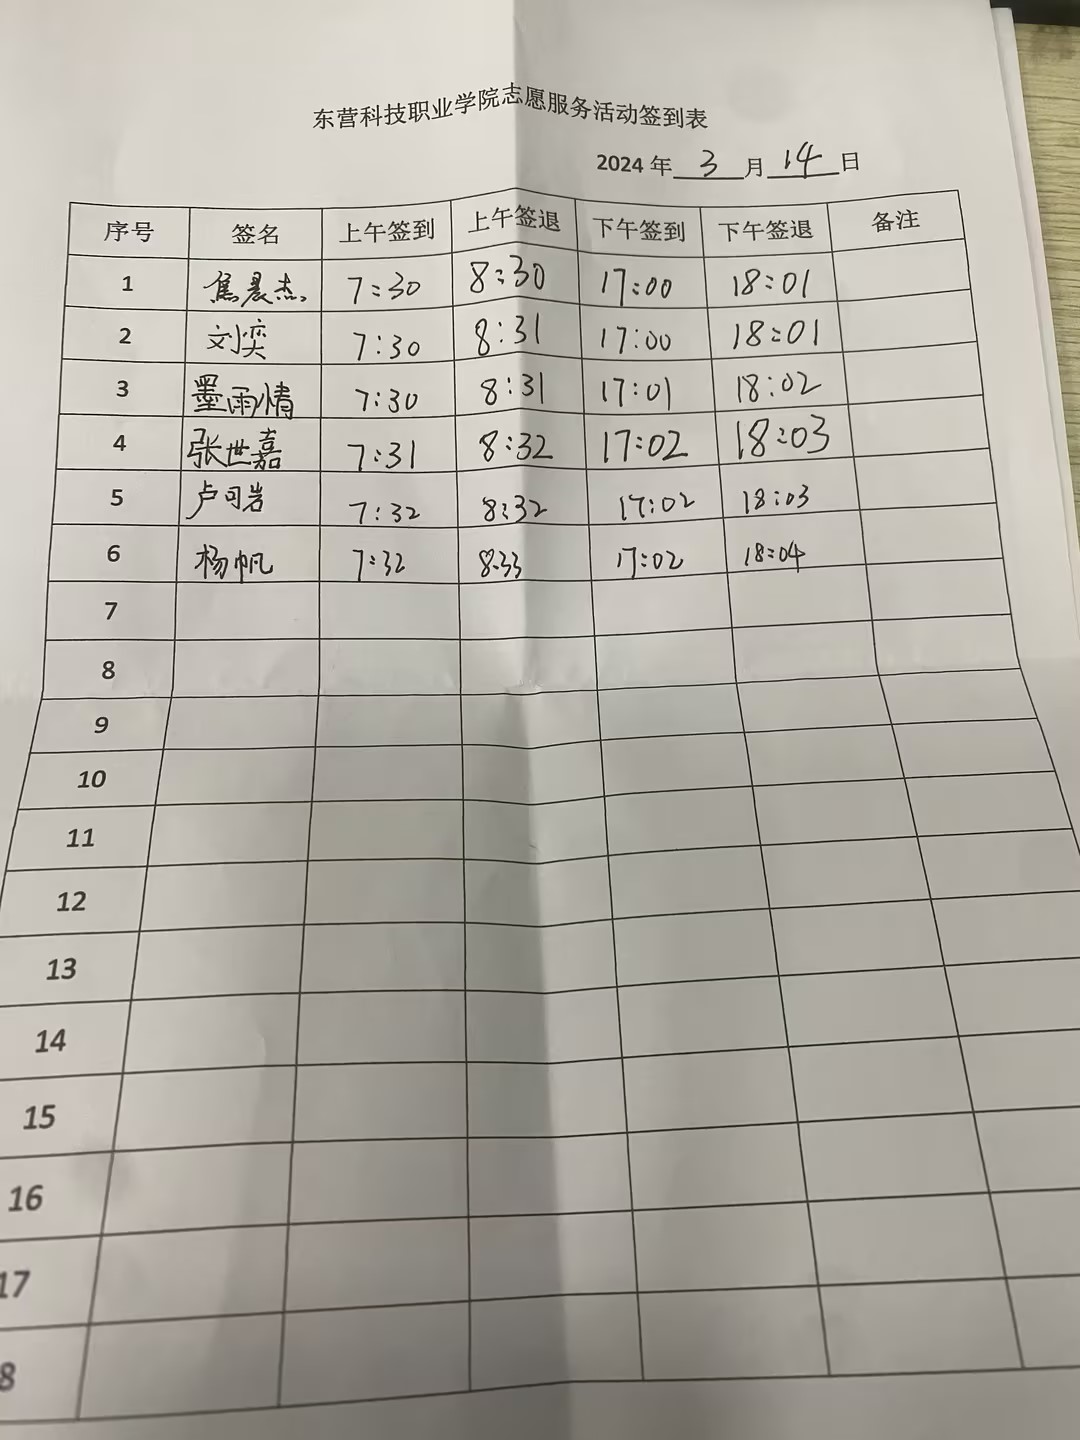 东营科技职业学院志愿服务活动签到表
2024 年 3 月 14 日
序号 签名 上午签到 上午签退 下午签到 下午签退 备注
1 焦晨杰 7:30 8:30 17:00 18:01
2 刘奕 7:30 8:31 17:00 18:01
3 墨雨情 7:30 8:31 17:01 18:02
4 张世嘉 7:31 8:32 17:02 18:03
5 卢可岩 7:32 8:32 17:02 18:03
6 杨帆 7:32 8:33 17:02 18:04
7
8
9
10
11
12
13
14
15
16
17
8